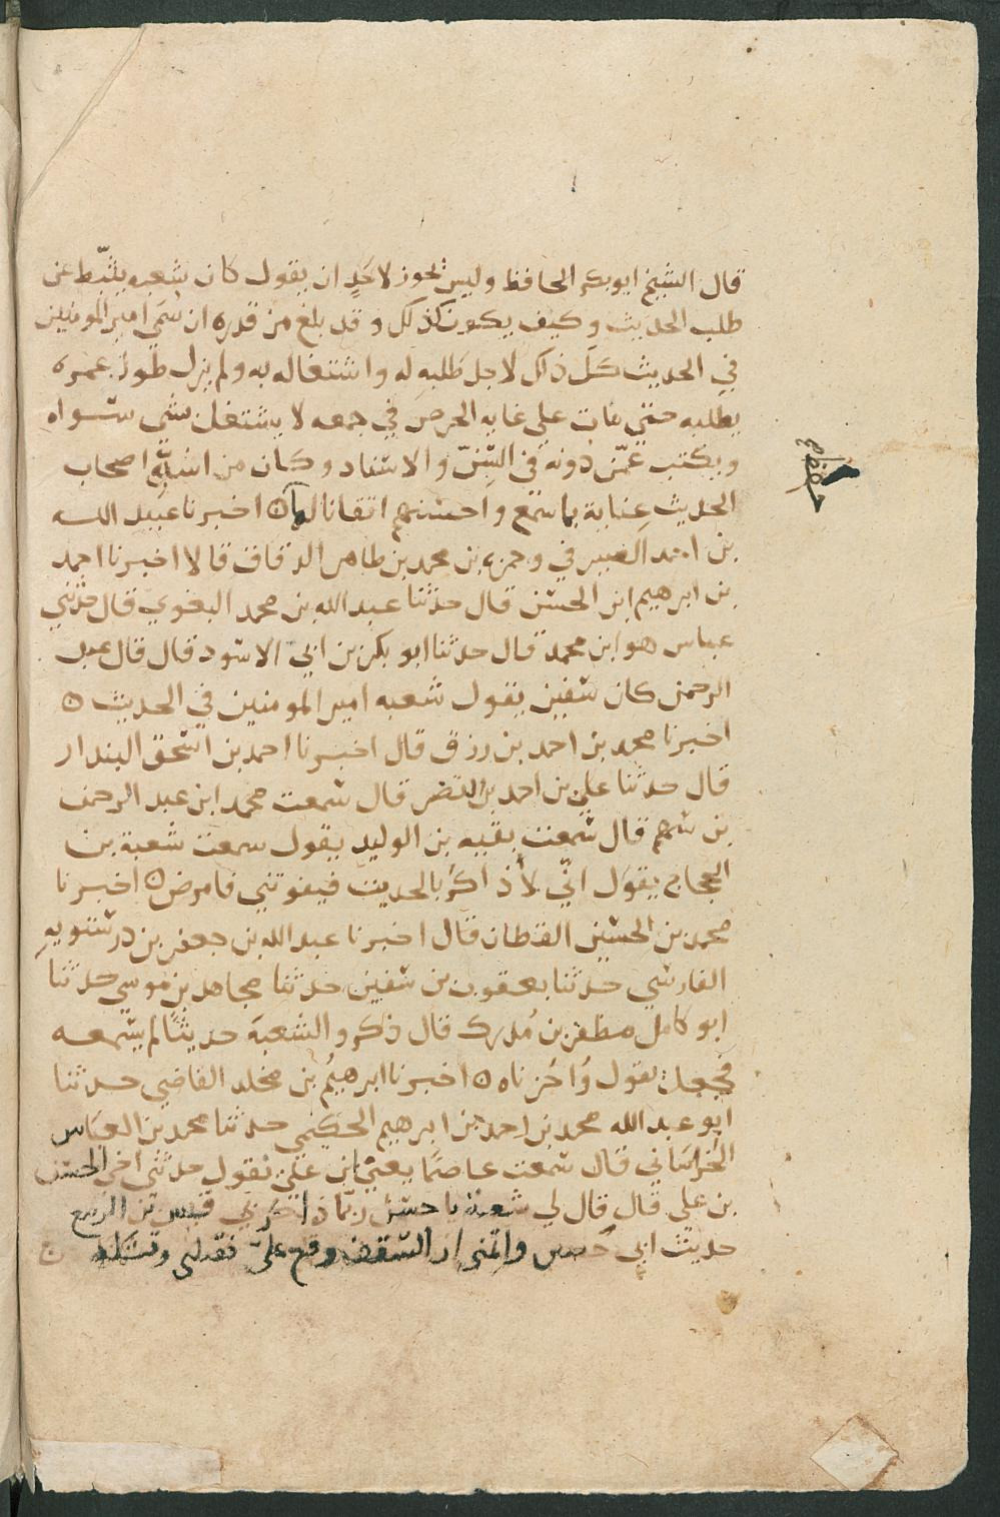 قال الشيخ ابو بكر الحافظ وليس يجوز لاحدٍ ان يقول كان شعبه يثبّط عن
طلب الحديث وكيف يكون كذلك وقد بلغ من قدره ان سُمّي امير المومنين
في الحديث كلّ ذلك لاجل طَلَبِه له واشتغاله به ولم يزل طول عمره
يطلبه حتى مات على غايه الحرص في جمعه لا يشتغل بشي سواه
ويكتب عمّن دونه في السِّنّ والاسناد وكان من اشدِّ اصحاب
الحديث عِنايةً بما سمع واحسنهم اتقانا لما ه اخبرنا عبيد الله
بن احمد الصيرفي وحمزه بن محمد بن طاهر الدقاق قالا اخبرنا احمد
بن ابرهيم ابن الحسن قال حدثنا عبد الله بن محمد البغوي قال حدثني
عباس هو ابن محمد قال حدثنا ابو بكر بن ابي الاسود قال قال عبد
الرحمن كان سفين يقول شعبه امير المومنين في الحديث ه
اخبرنا محمد بن احمد بن رزق قال اخبرنا احمد بن اسحق البندار
قال حدثنا علي بن احمد بن النضر قال سمعت محمد ابن عبد الرحمن
بن سهم قال سمعت بقيه بن الوليد يقول سمعت شعبة بن
الحجاج يقول انّي لأُذاكَرُ بالحديث فيفوتني فامرض ه اخبرنا
محمد بن الحسين القطان قال اخبرنا عبد الله بن جعفر بن درستويه
الفارسي حدثنا يعقوب بن سفين حدثنا مجاهد بن موسي حدثنا
ابو كامل مظفر بن مُدرك قال ذكروا لشعبة حديثًا لم يسمعه
فجعل يقول وَاحُزناه ه اخبرنا ابرهيمُ بن مخلد القاضي حدثنا
ابو عبد الله محمد بن احمد بن ابرهيم الحكيمي حدثنا محمد بن العباس
الخراساني قال سمعت عاصمًا يعني ابن علي يقول حدثني اخي الحسن
بن علي قال قال لي شعبة يا حسن ربّما ذاكرني قيس بن الربيع
حديث ابي حصين واتمني ان السقف وقع عليّ فقتلني وقتله ه